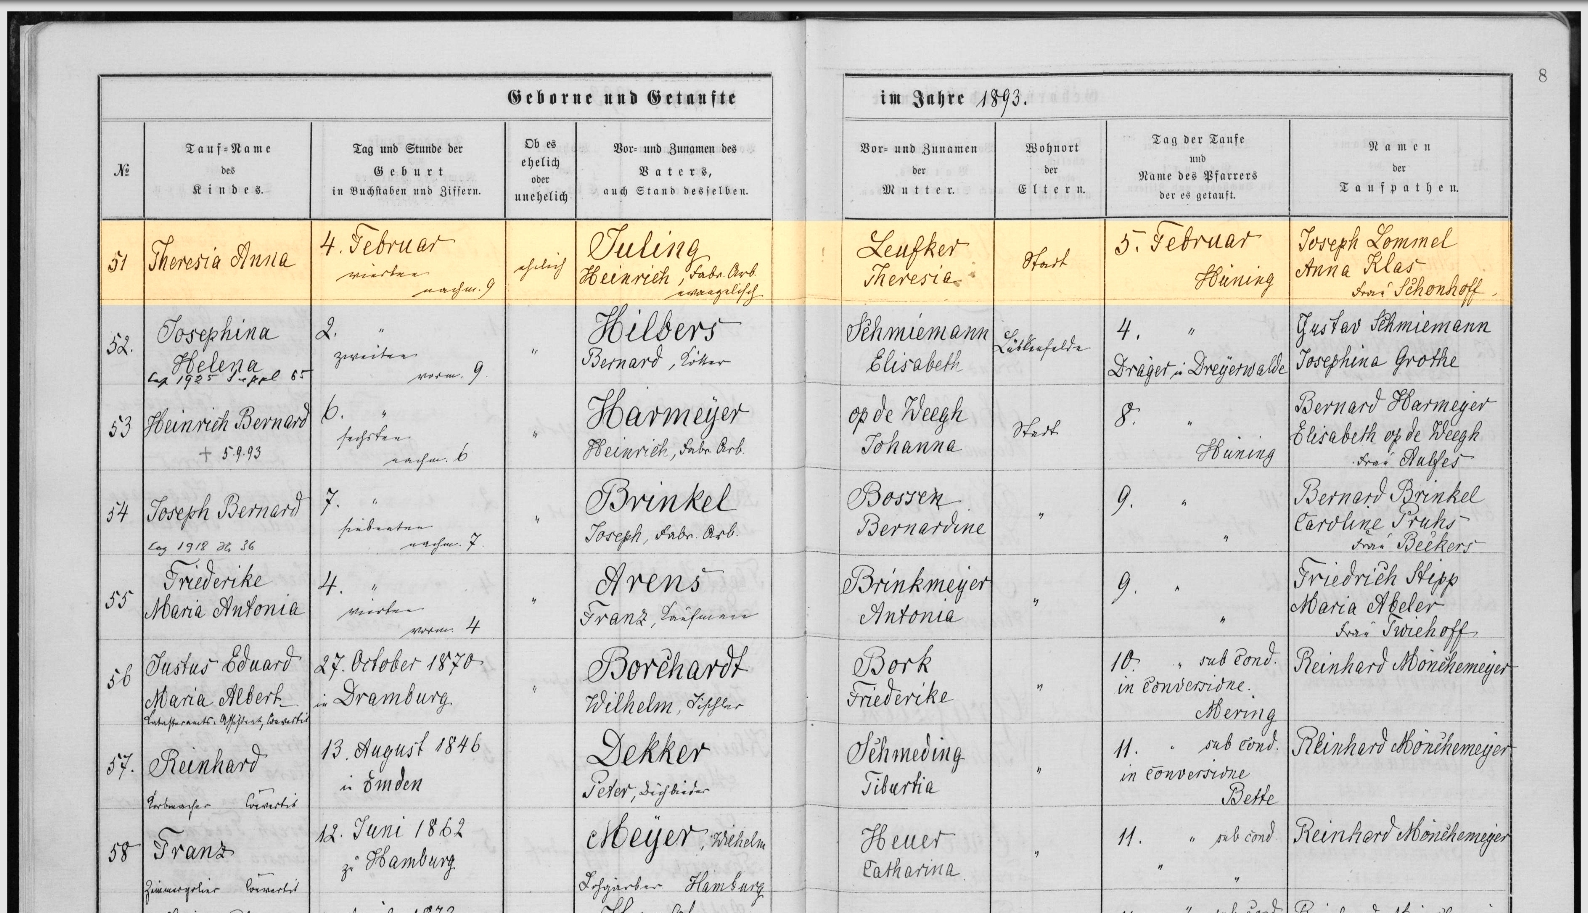 8
Geborne und Getaufte im Jahre 1893.
№
Tauf-Name
des
Kindes.
Tag und Stunde der
Geburt
in Buchstaben und Ziffern.
Ob es
ehelich
oder
unehelich
Vor- und Zunamen des
Vaters,
auch Stand desselben.
Vor- und Zunamen
der
Mutter.
Wohnort
der
Eltern.
Tag der Taufe
und
Name des Pfarrers
der es getauft.
Namen
der
Taufpathen.
51
Theresia Anna
4. Februar
vierten
nachm. 9
ehelich
Juling
Heinrich, Fabr. Arb.
evangelisch
Leufker
Theresia
Stadt
5. Februar
Hüning
Joseph Lommel
Anna Klas
Frau Schonhoff.
52.
Josephina
Helena
cop 1925 Suppl 65
2. "
zweiten
vorm. 9.
"
Hilbers
Bernard, Kötter
Schmiemann
Elisabeth
4. "
Dräger in Dreyerwalde
Gustav Schmiemann
Josephina Grothe
53
Heinrich Bernard
+ 5.9.93
6. "
sechsten
nachm. 6
"
Harmeyer
Heinrich, Fabr. Arb.
op de Weegh
Johanna
Stadt
8. "
Hüning
Bernard Harmeyer
Elisabeth op de Weegh
Frau Aulfes
54
Joseph Bernard
cop 1918 36
7. "
siebenten
nachm. 7.
"
Brinkel
Joseph, Fabr. Arb.
Bossen
Bernardine
"
9. "
"
Bernard Brinkel
Caroline Pruhs
Frau Beckers
55
Friederike
Maria Antonia
4. "
vierten
vorm. 4
"
Arens
Franz, Kaufmann
Brinkmeyer
Antonia
"
9. "
"
Friedrich Stipp
Maria Abeler
Frau Twiehoff
56
Justus Eduard
Maria Albert
27. October 1870
in Dramburg
"
Borchardt
Wilhelm, Tischler
Bork
Friederike
"
10. " sub cond.
in conversione.
Mering
Reinhard Mönchemeyer
57.
Reinhard
Convertit
13. August 1846
in Emden
Dekker
Peter,
Schmeding
Tiburtia
"
11. " sub cond.
in conversione
Bette
Reinhard Mönchemeyer
58
Franz
Convertit
12. Juni 1862
zu Hamburg
Meyer, Wilhelm
Lohgerber Hamburg
Heuer
Catharina.
"
11. " sub cond
" "
Reinhard Mönchemeyer